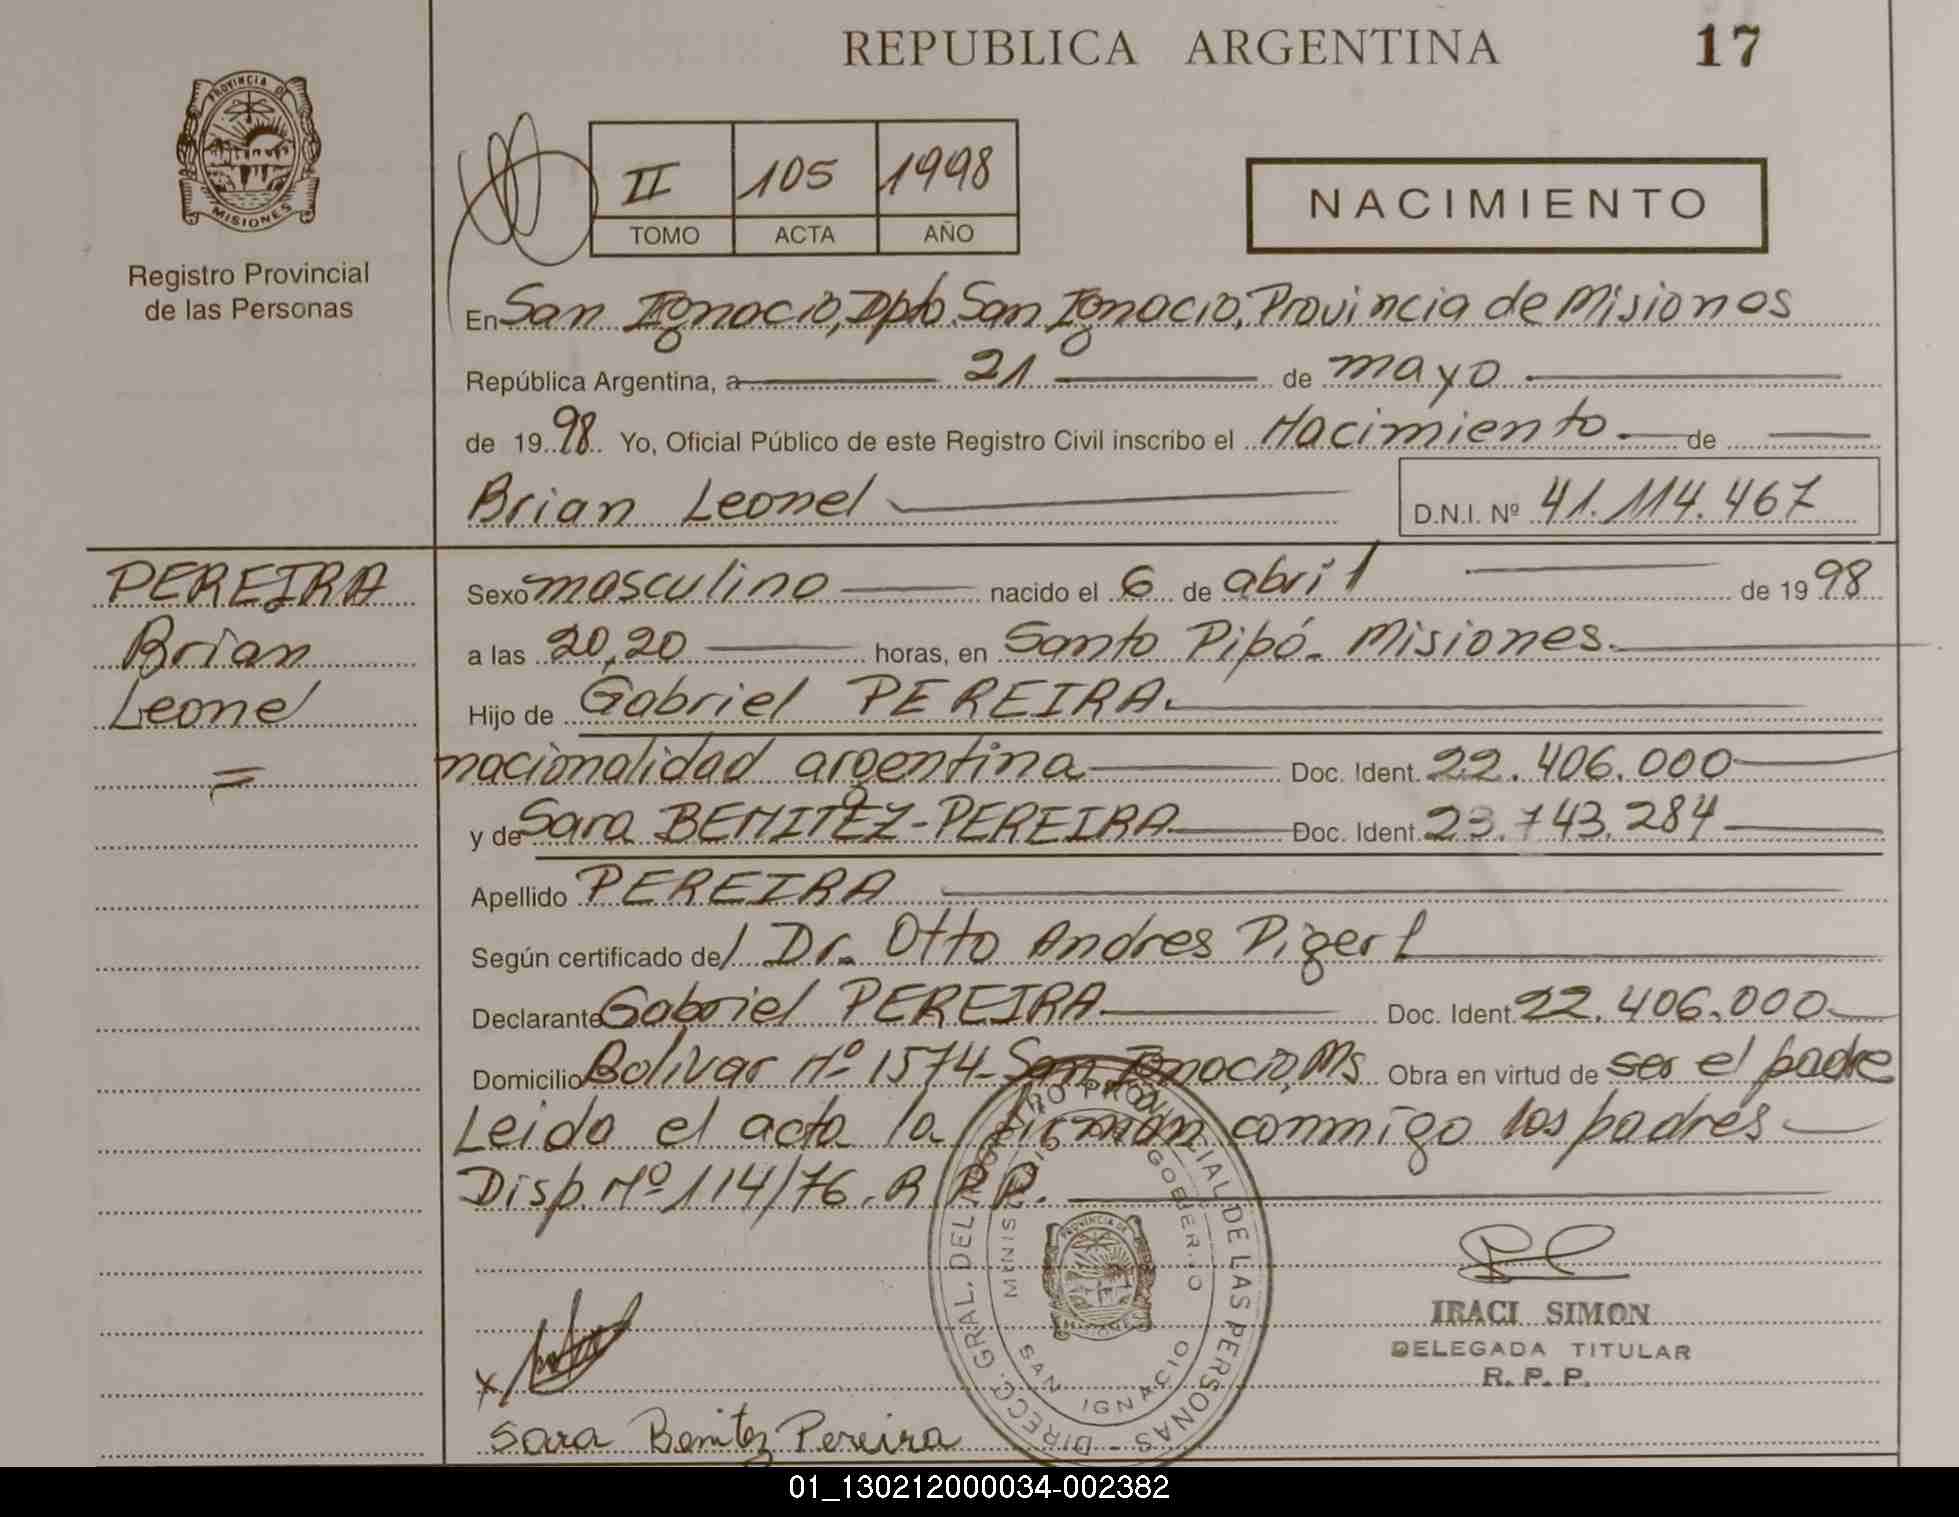 REPUBLICA ARGENTINA
17
PROVINCIA DE
MISIONES
Registro Provincial
de las Personas
II 105 1998
TOMO ACTA AÑO
NACIMIENTO
En San Ignacio, Dpto. San Ignacio, Provincia de Misiones
República Argentina, a 21 de mayo
de 1998 Yo, Oficial Público de este Registro Civil inscribo el Nacimiento de
Brian Leonel
D.N.I. Nº 41.114.467
PEREIRA
Brian
Leonel
Sexo masculino nacido el 6 de abril de 1998
a las 20,20 horas, en Santo Pipó - Misiones.
Hijo de Gabriel PEREIRA.
nacionalidad argentina Doc. Ident. 22.406.000
y de Sara BENITEZ-PEREIRA Doc. Ident. 23.743.284
Apellido PEREIRA
Según certificado del Dr. Otto Andres Pigerl
Declarante Gabriel PEREIRA Doc. Ident. 22.406.000
Domicilio Bolivar Nº 1574- San Ignacio, Ms Obra en virtud de ser el padre
Leida el acta la firman conmigo los padres
Disp. Nº 114/76. R.P.P.
DIRECC. GRAL. DEL REGISTRO PROVINCIAL DE LAS PERSONAS -
MINISTERIO DE GOBIERNO
PROVINCIA DE
MISIONES
SAN IGNACIO
IRACI SIMON
DELEGADA TITULAR
R. P. P.
x
Sara Benitez Pereira
01_130212000034-002382